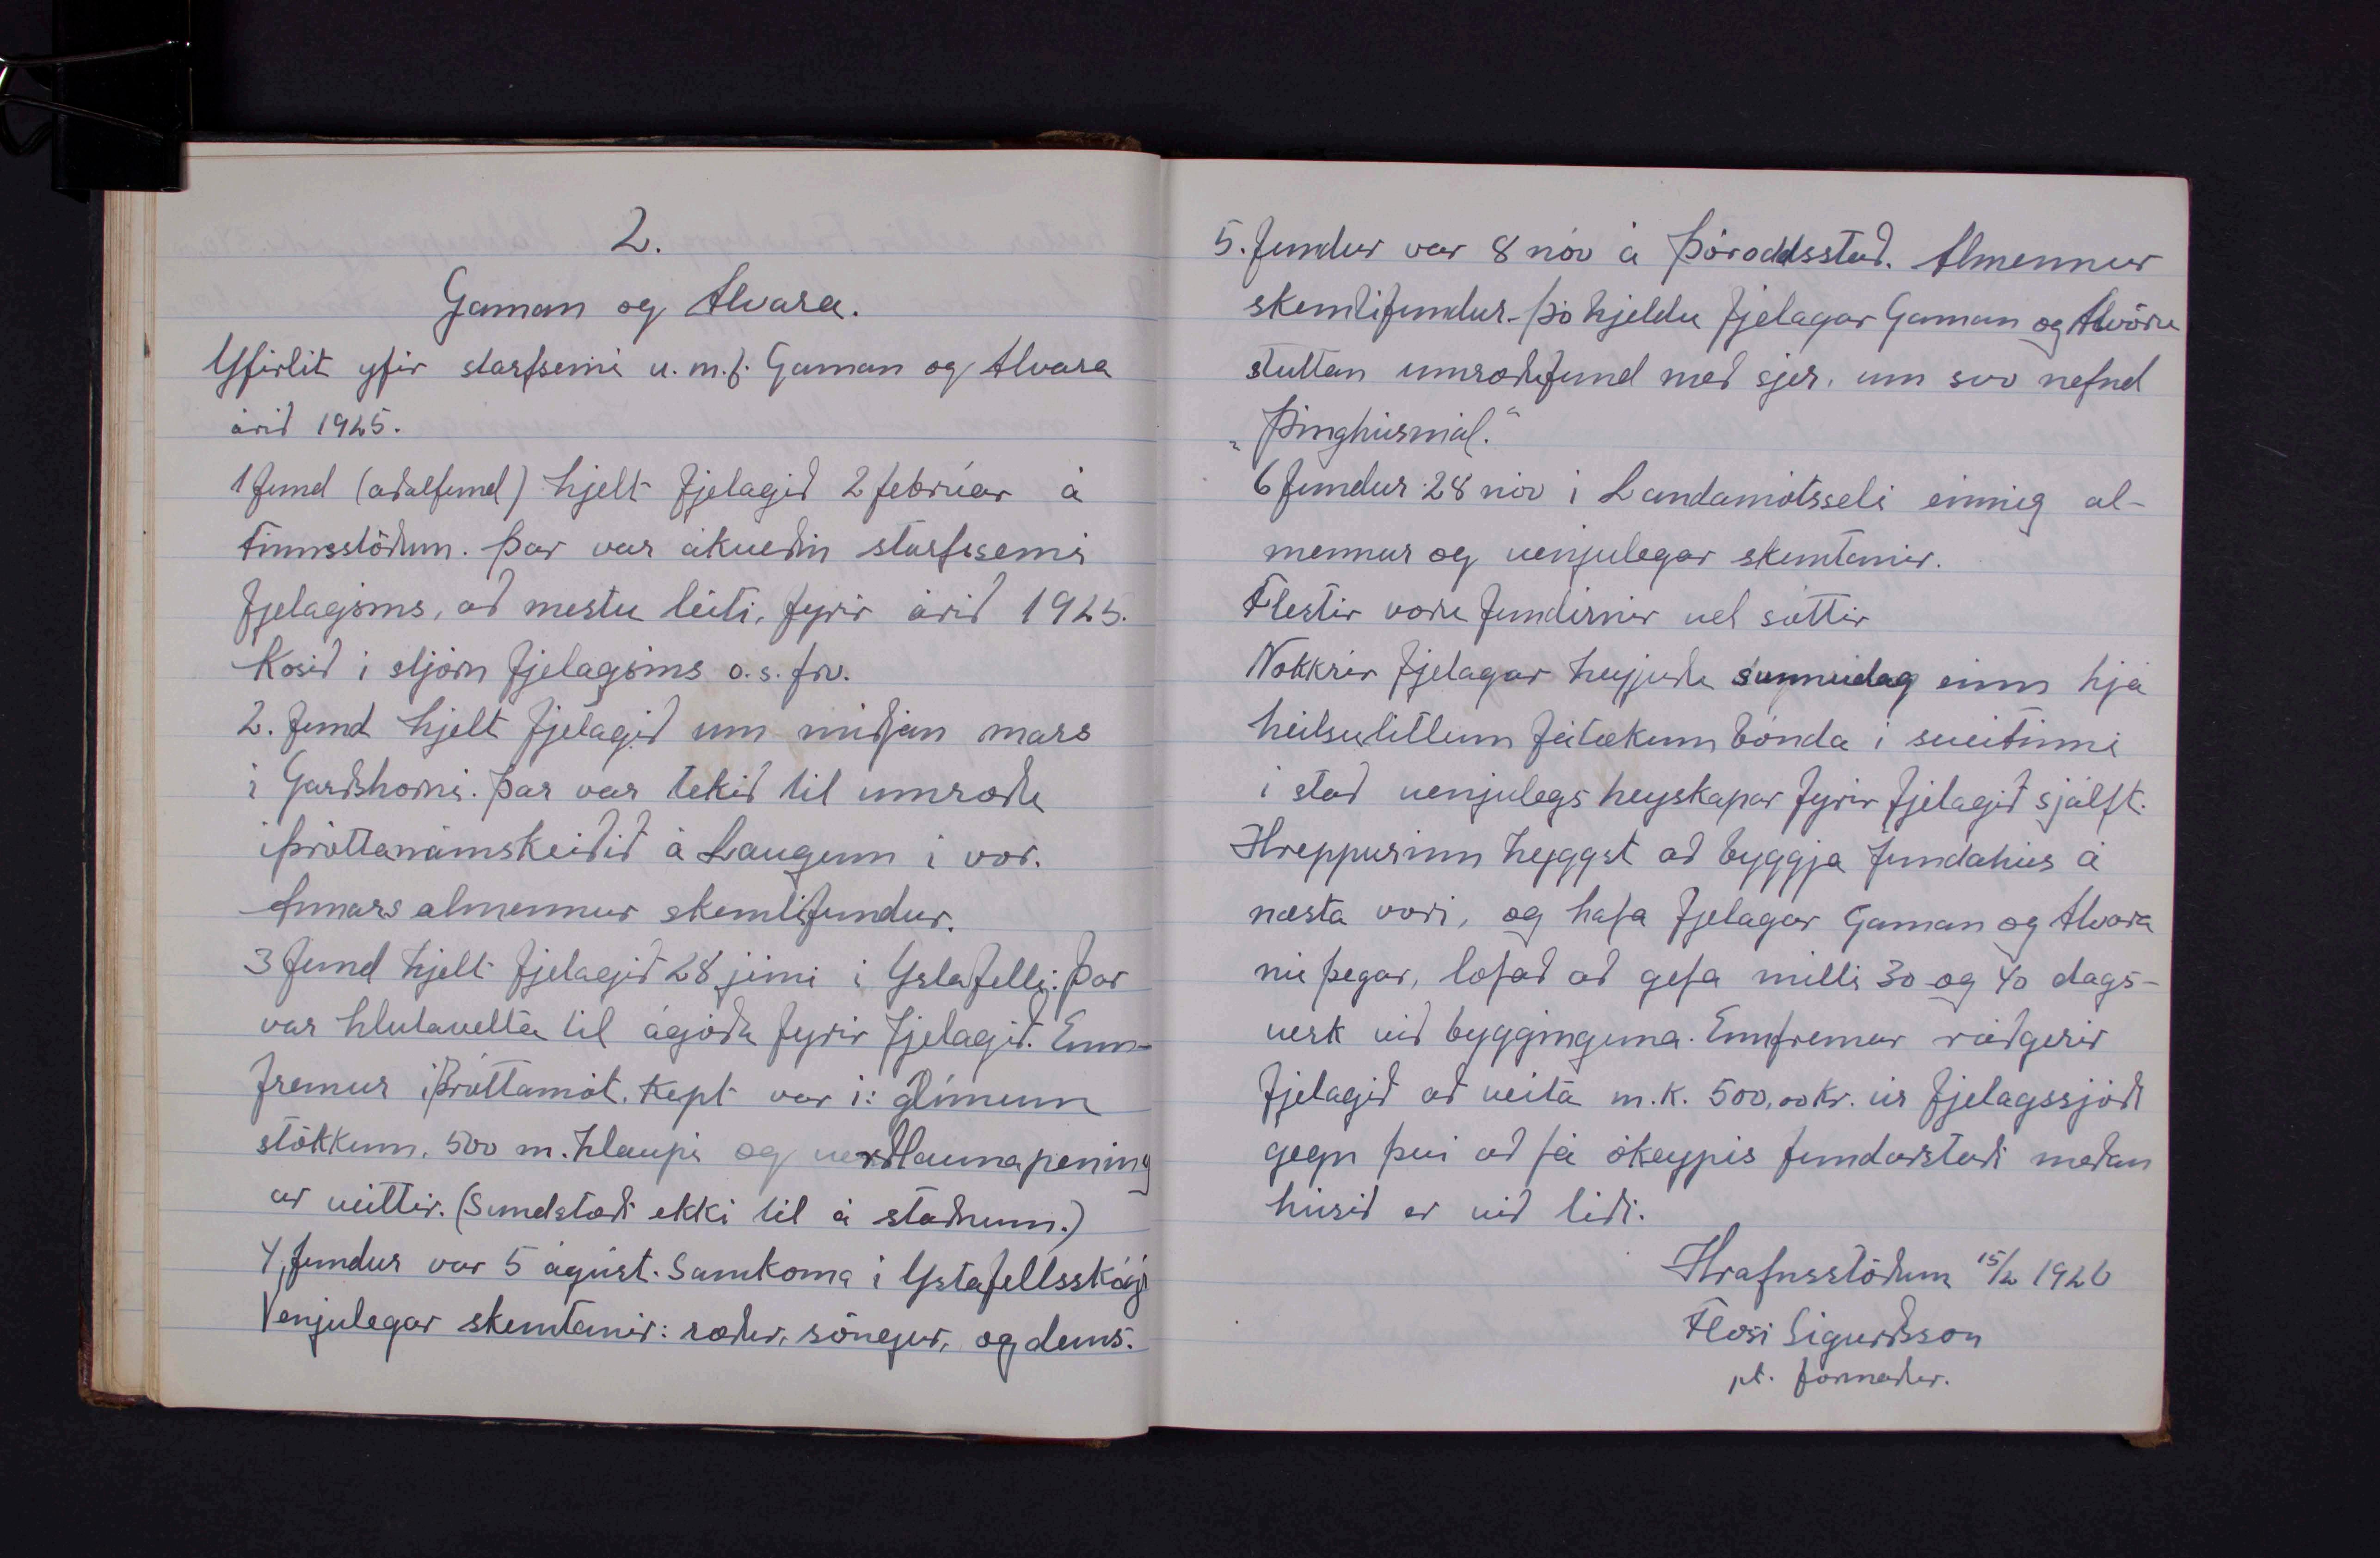 2.
Gaman og Alvara.
Yfirlit yfir starfsemi u.m.f. Gaman og Alvara
árið 1925.
1 fund (aðalfund) hjelt fjelagið 2 febrúar á
Finnsstöðum. Þar var ákveðin starfssemi
fjelagsins, að mestu leiti, fyrir árið 1925.
Kosið í stjórn fjelagsins o.s.frv.
2. fund hjelt fjelagið um miðjan mars
í Garðshorni. Þar var tekið til umræðu
íþróttanámskeiðið á Laugum í vor.
Annars almennur skemtifundur.
3 fund hjelt fjelagið 28 júní í Ystafelli. Þar
var hlutavelta til ágóða fyrir fjelagið. Enn-
fremur íþróttamót. Kept var í: glímum
stökkum, 500 m. hlaupi og verðlaunapening
ar veittir. (Sundstæði ekki til á staðnum.)
4, fundur var 5 ágúst. Samkoma í Ystafellsskógi
Venjulegar skemtanir: ræður, söngur, og dans.
5. fundur var 8 nóv á Þóroddsstað. Almennur
skemtifundur - þó hjeldu fjelagar Gaman og Alvöru
stuttan umræðufund með sjer, um svo nefnd
„Þinghúsmál."
6 fundur 28 nóv í Landamótsseli einnig al-
mennur og venjulegar skemtanir.
Flestir voru fundirnir vel sóttir
Nokkrir fjelagar heyjuðu sunnudag einn hjá
heilsulitlum fátækum bónda í sveitinni
í stað venjulegs heyskapar fyrir fjelagið sjálft.
Hreppurinn hyggst að byggja fundahús á
næsta vori, og hafa fjelagar Gaman og Alvara
nú þegar, lofað að gefa milli 30 og 40 dags-
verk við bygginguna. Ennfremur ráðgerir
fjelagið að veita m.k. 500,00 kr. úr fjelagssjóði
gegn því að fá ókeypis fundarstað meðan
húsið er við líði.
Hrafnsstöðum 15/2 1926
Flosi Sigurðsson
pt. formaður.